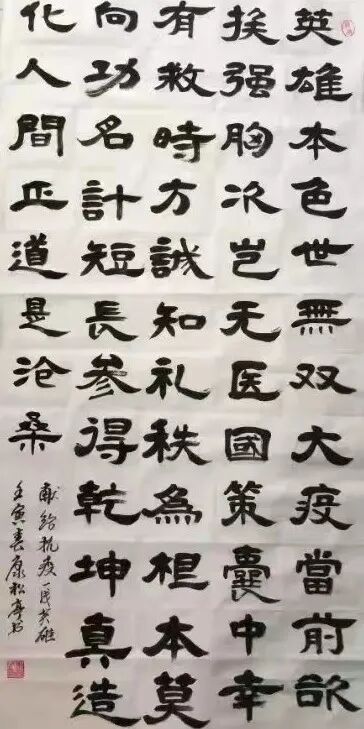 英雄本色世無双大疫當前欲
挨强胸次岂无医國策囊中幸
有救時方誠知礼秩為根本莫
向功名計短長参得乾坤真造
化人間正道是沧桑
献给抗疫民英雄
壬寅春康松亭书